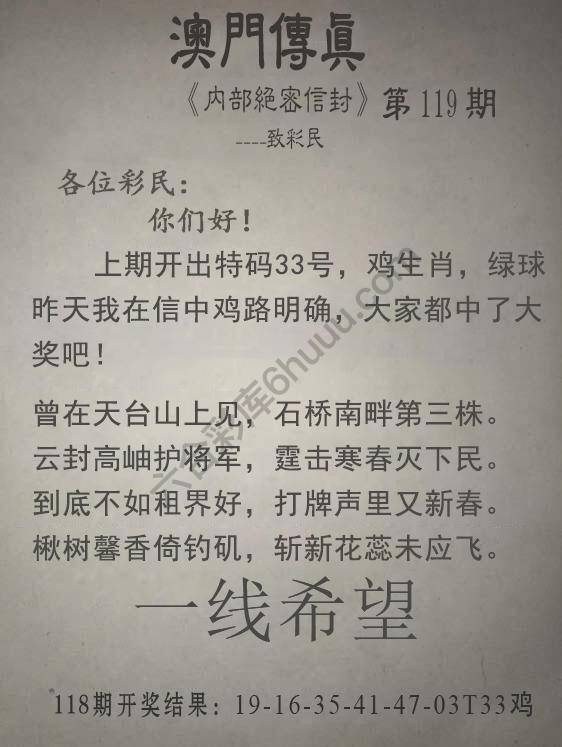 澳門傳真
《内部絕密信封》第119期
----致彩民
各位彩民：
你们好！
上期开出特码33号，鸡生肖，绿球
昨天我在信中鸡路明确，大家都中了大
奖吧！
曾在天台山上见，石桥南畔第三株。
云封高岫护将军，霆击寒春灭下民。
到底不如租界好，打牌声里又新春。
楸树馨香倚钓矶，斩新花蕊未应飞。
一线希望
118期开奖结果：19-16-35-41-47-03T33鸡
六合彩库6huuu.com